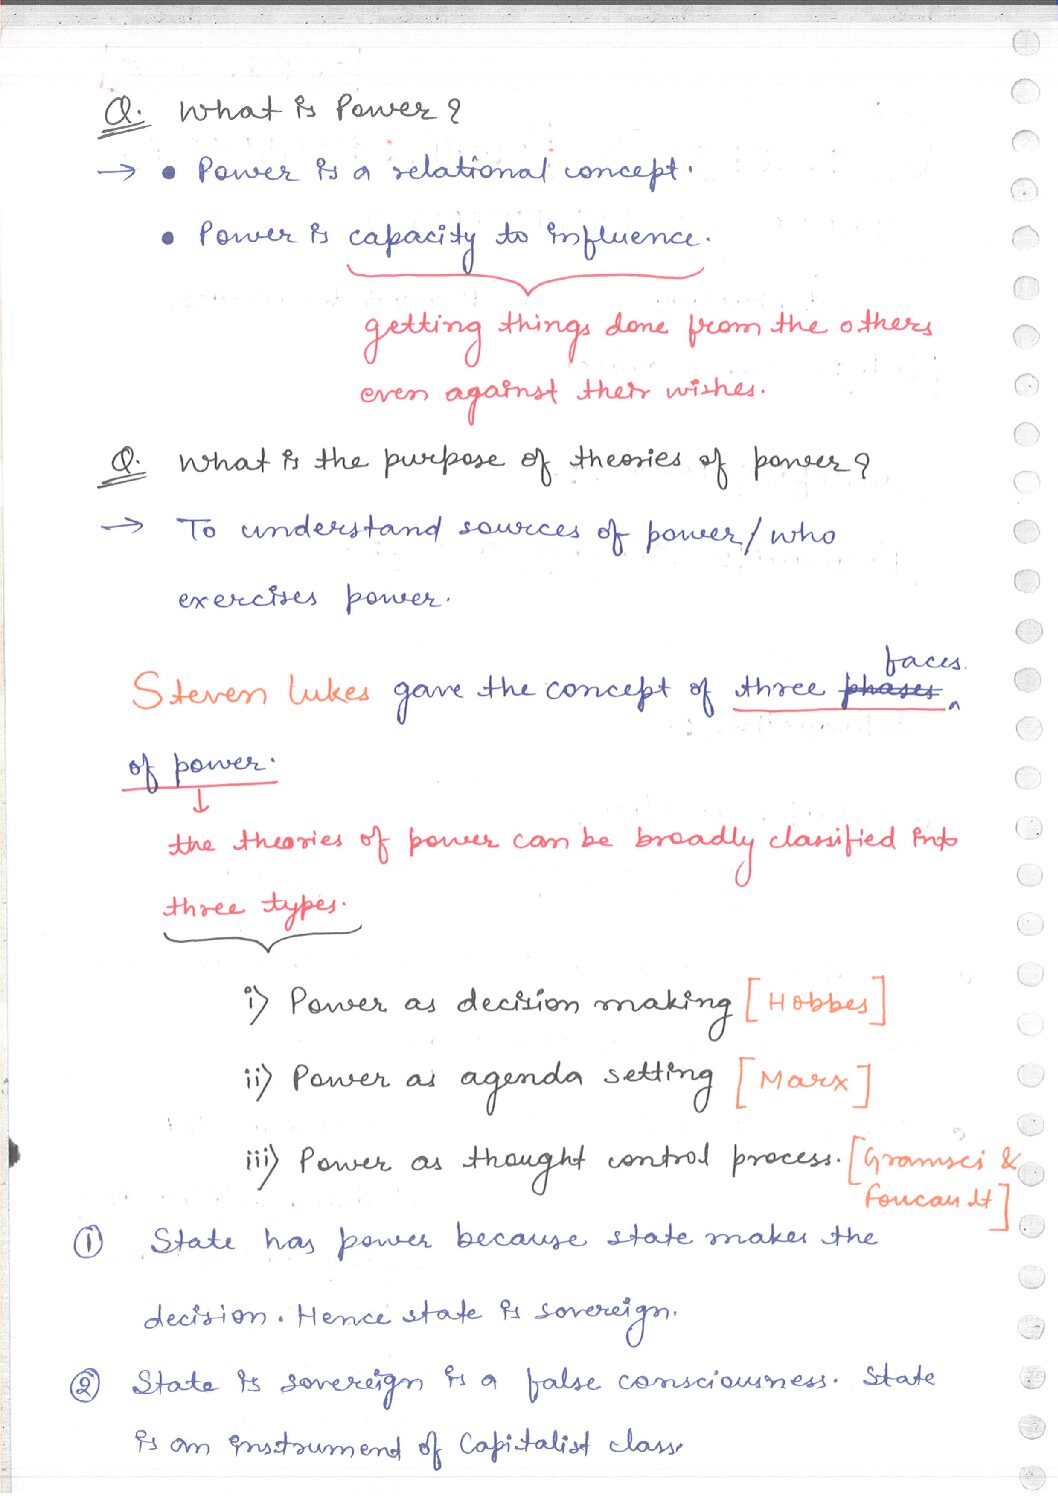 Q. What is Power?
→ • Power is a relational concept.
• Power is capacity to influence.
getting things done from the others
even against their wishes.
Q. What is the purpose of theories of power?
→ To understand sources of power/who
exercises power.
faces.
Steven Lukes gave the concept of three phases
of power.
the theories of power can be broadly classified into
three types.
i) Power as decision making [Hobbes]
ii) Power as agenda setting [Marx]
iii) Power as thought control process. [Gramsci &
Foucault]
① State has power because state makes the
decision. Hence state is sovereign.
② State is sovereign is a false consciousness. State
is an instrumend of Capitalist class.